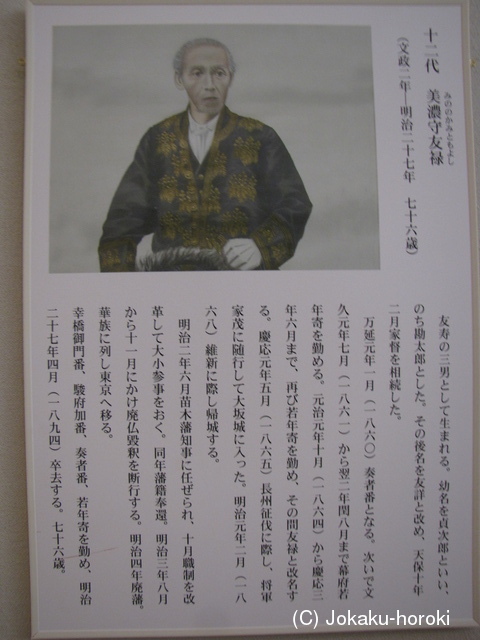 十二代　美濃守友禄
みののかみともよし
（文政二年―明治二十七年　七十六歳）
友寿の三男として生まれる。幼名を貞次郎といい、
のち勘太郎とした。その後名を友詳と改め、天保十年
二月家督を相続した。
万延元年一月（一八六〇）奏者番となる。次いで文
久元年七月（一八六一）から翌二年閏八月まで幕府若
年寄を勤める。元治元年十月（一八六四）から慶応三
年六月まで、再び若年寄を勤め、その間友禄と改名す
る。慶応元年五月（一八六五）長州征伐に際し、将軍
家茂に随行して大坂城に入った。明治元年二月（一八
六八）維新に際し帰城する。
明治二年六月苗木藩知事に任ぜられ、十月職制を改
革して大小参事をおく。同年藩籍奉還。明治三年八月
から十一月にかけ廃仏毀釈を断行する。明治四年廃藩。
華族に列し東京へ移る。
幸橋御門番、駿府加番、奏者番、若年寄を勤め、明治
二十七年四月（一八九四）卒去する。七十六歳。
(C) Jokaku-horoki